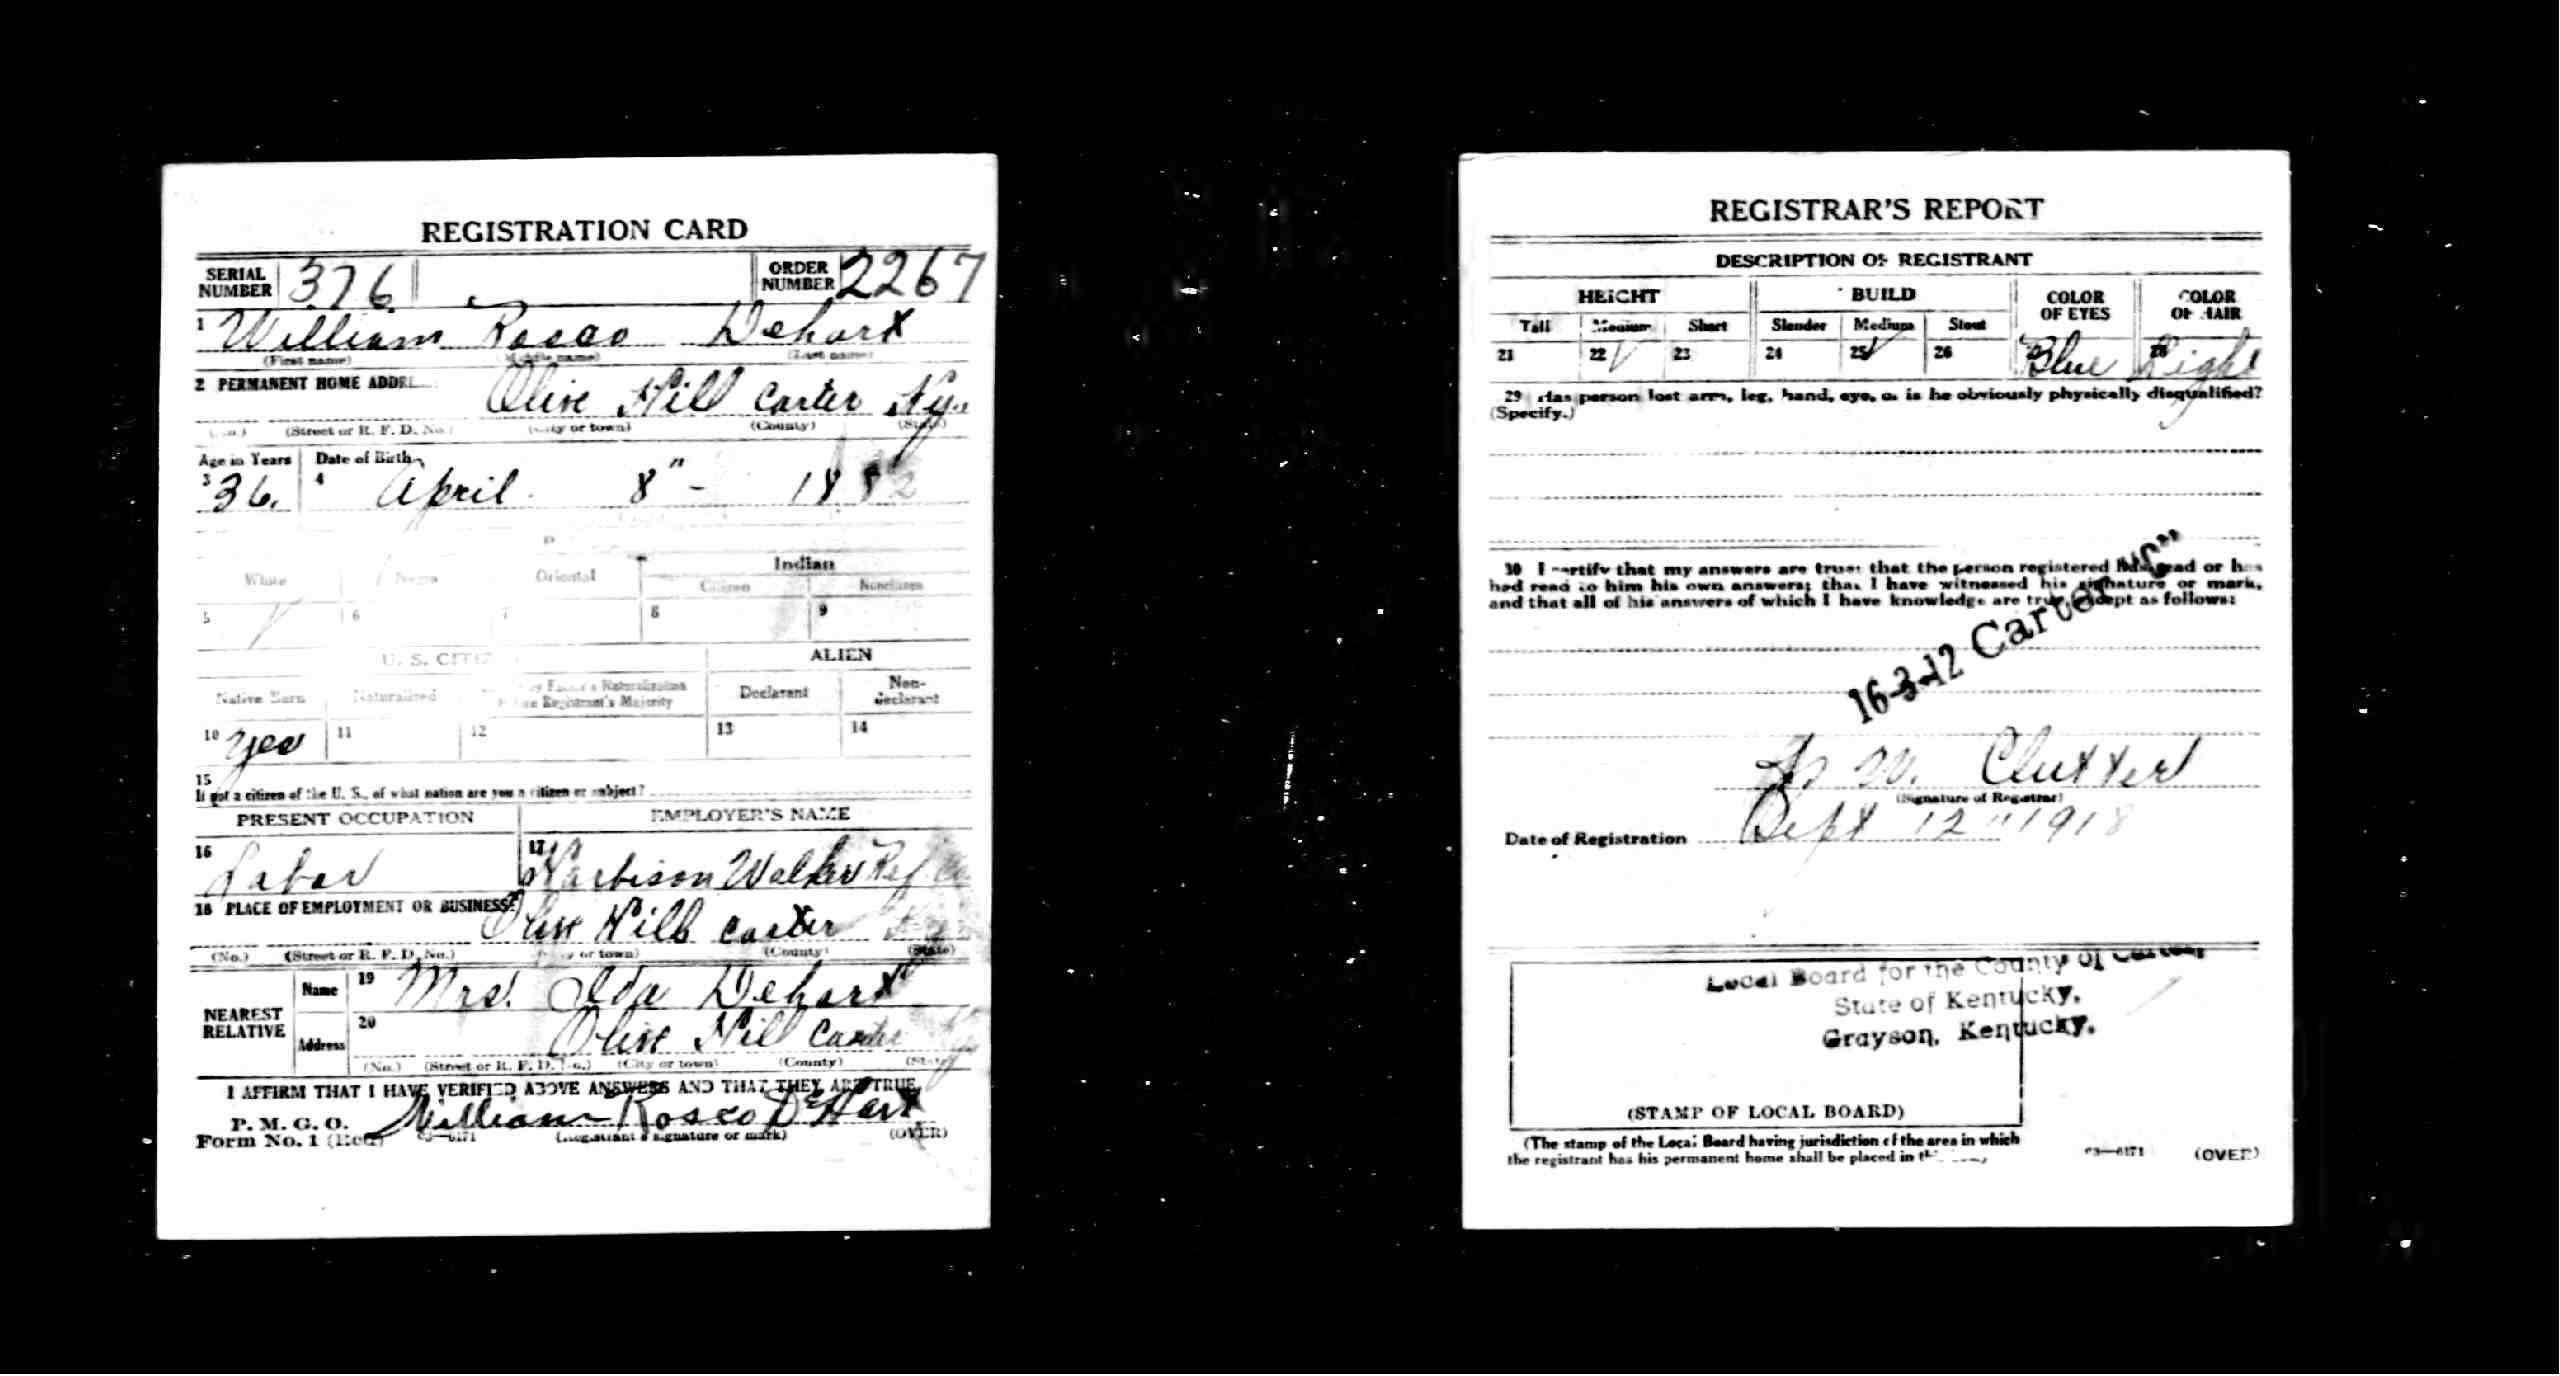 REGISTRATION CARD
SERIAL NUMBER 376 ORDER NUMBER 2267
1 William Rosco Dehart
(First name) (Middle name) (Last name)
2 PERMANENT HOME ADDR
Olive Hill Carter Ky.
(No.) (Street or R. F. D. No.) (City or town) (County) (State)
Age in Years Date of Birth
3 36. 4 April 8" - 1882
Indian
White Negro Oriental Citizen Noncitizen
5 √ 6 7 8 9
U. S. CITIZ ALIEN
Native Born Naturalized by Father's Naturalization Registrant's Majority Declarant Non-declarant
10 yes 11 12 13 14
15
If not a citizen of the U. S., of what nation are you a citizen or subject?
PRESENT OCCUPATION EMPLOYER'S NAME
16 Labor 17 Harbison Walker Ref Co
18 PLACE OF EMPLOYMENT OR BUSINESS:
Olive Hill Carter Ky
(No.) (Street or R. F. D. No.) (City or town) (County) (State)
NEAREST RELATIVE
Name 19 Mrs. Ida Dehart
Address 20 Olive Hill Carter Ky
(No.) (Street or R. F. D. No.) (City or town) (County) (State)
I AFFIRM THAT I HAVE VERIFIED ABOVE ANSWERS AND THAT THEY ARE TRUE
P. M. G. O.
Form No. 1 (Red) William Rosco DeHart
03—6171 (Registrant's signature or mark) (OVER)
REGISTRAR'S REPORT
DESCRIPTION OF REGISTRANT
HEIGHT BUILD COLOR OF EYES COLOR OF HAIR
Tall Medium Short Slender Medium Stout
21 22 √ 23 24 25 √ 26 Blue Light
29 Has person lost arm, leg, hand, eye, or is he obviously physically disqualified?
(Specify.)
30 I certify that my answers are true; that the person registered has read or has
had read to him his own answers; that I have witnessed his signature or mark,
and that all of his answers of which I have knowledge are true, except as follows:
16-3-12 Carter "C"
M. Clutter
(Signature of Registrar)
Date of Registration Sept 12 " 1918
Local Board for the County of Carter,
State of Kentucky,
Grayson, Kentucky.
(STAMP OF LOCAL BOARD)
(The stamp of the Local Board having jurisdiction of the area in which
the registrant has his permanent home shall be placed in
03—6171 (OVER)